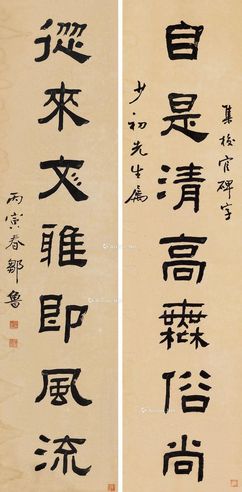 集校官碑字
自是清高無俗尚
少初先生属
從來文雅即風流
丙寅春鄒魯